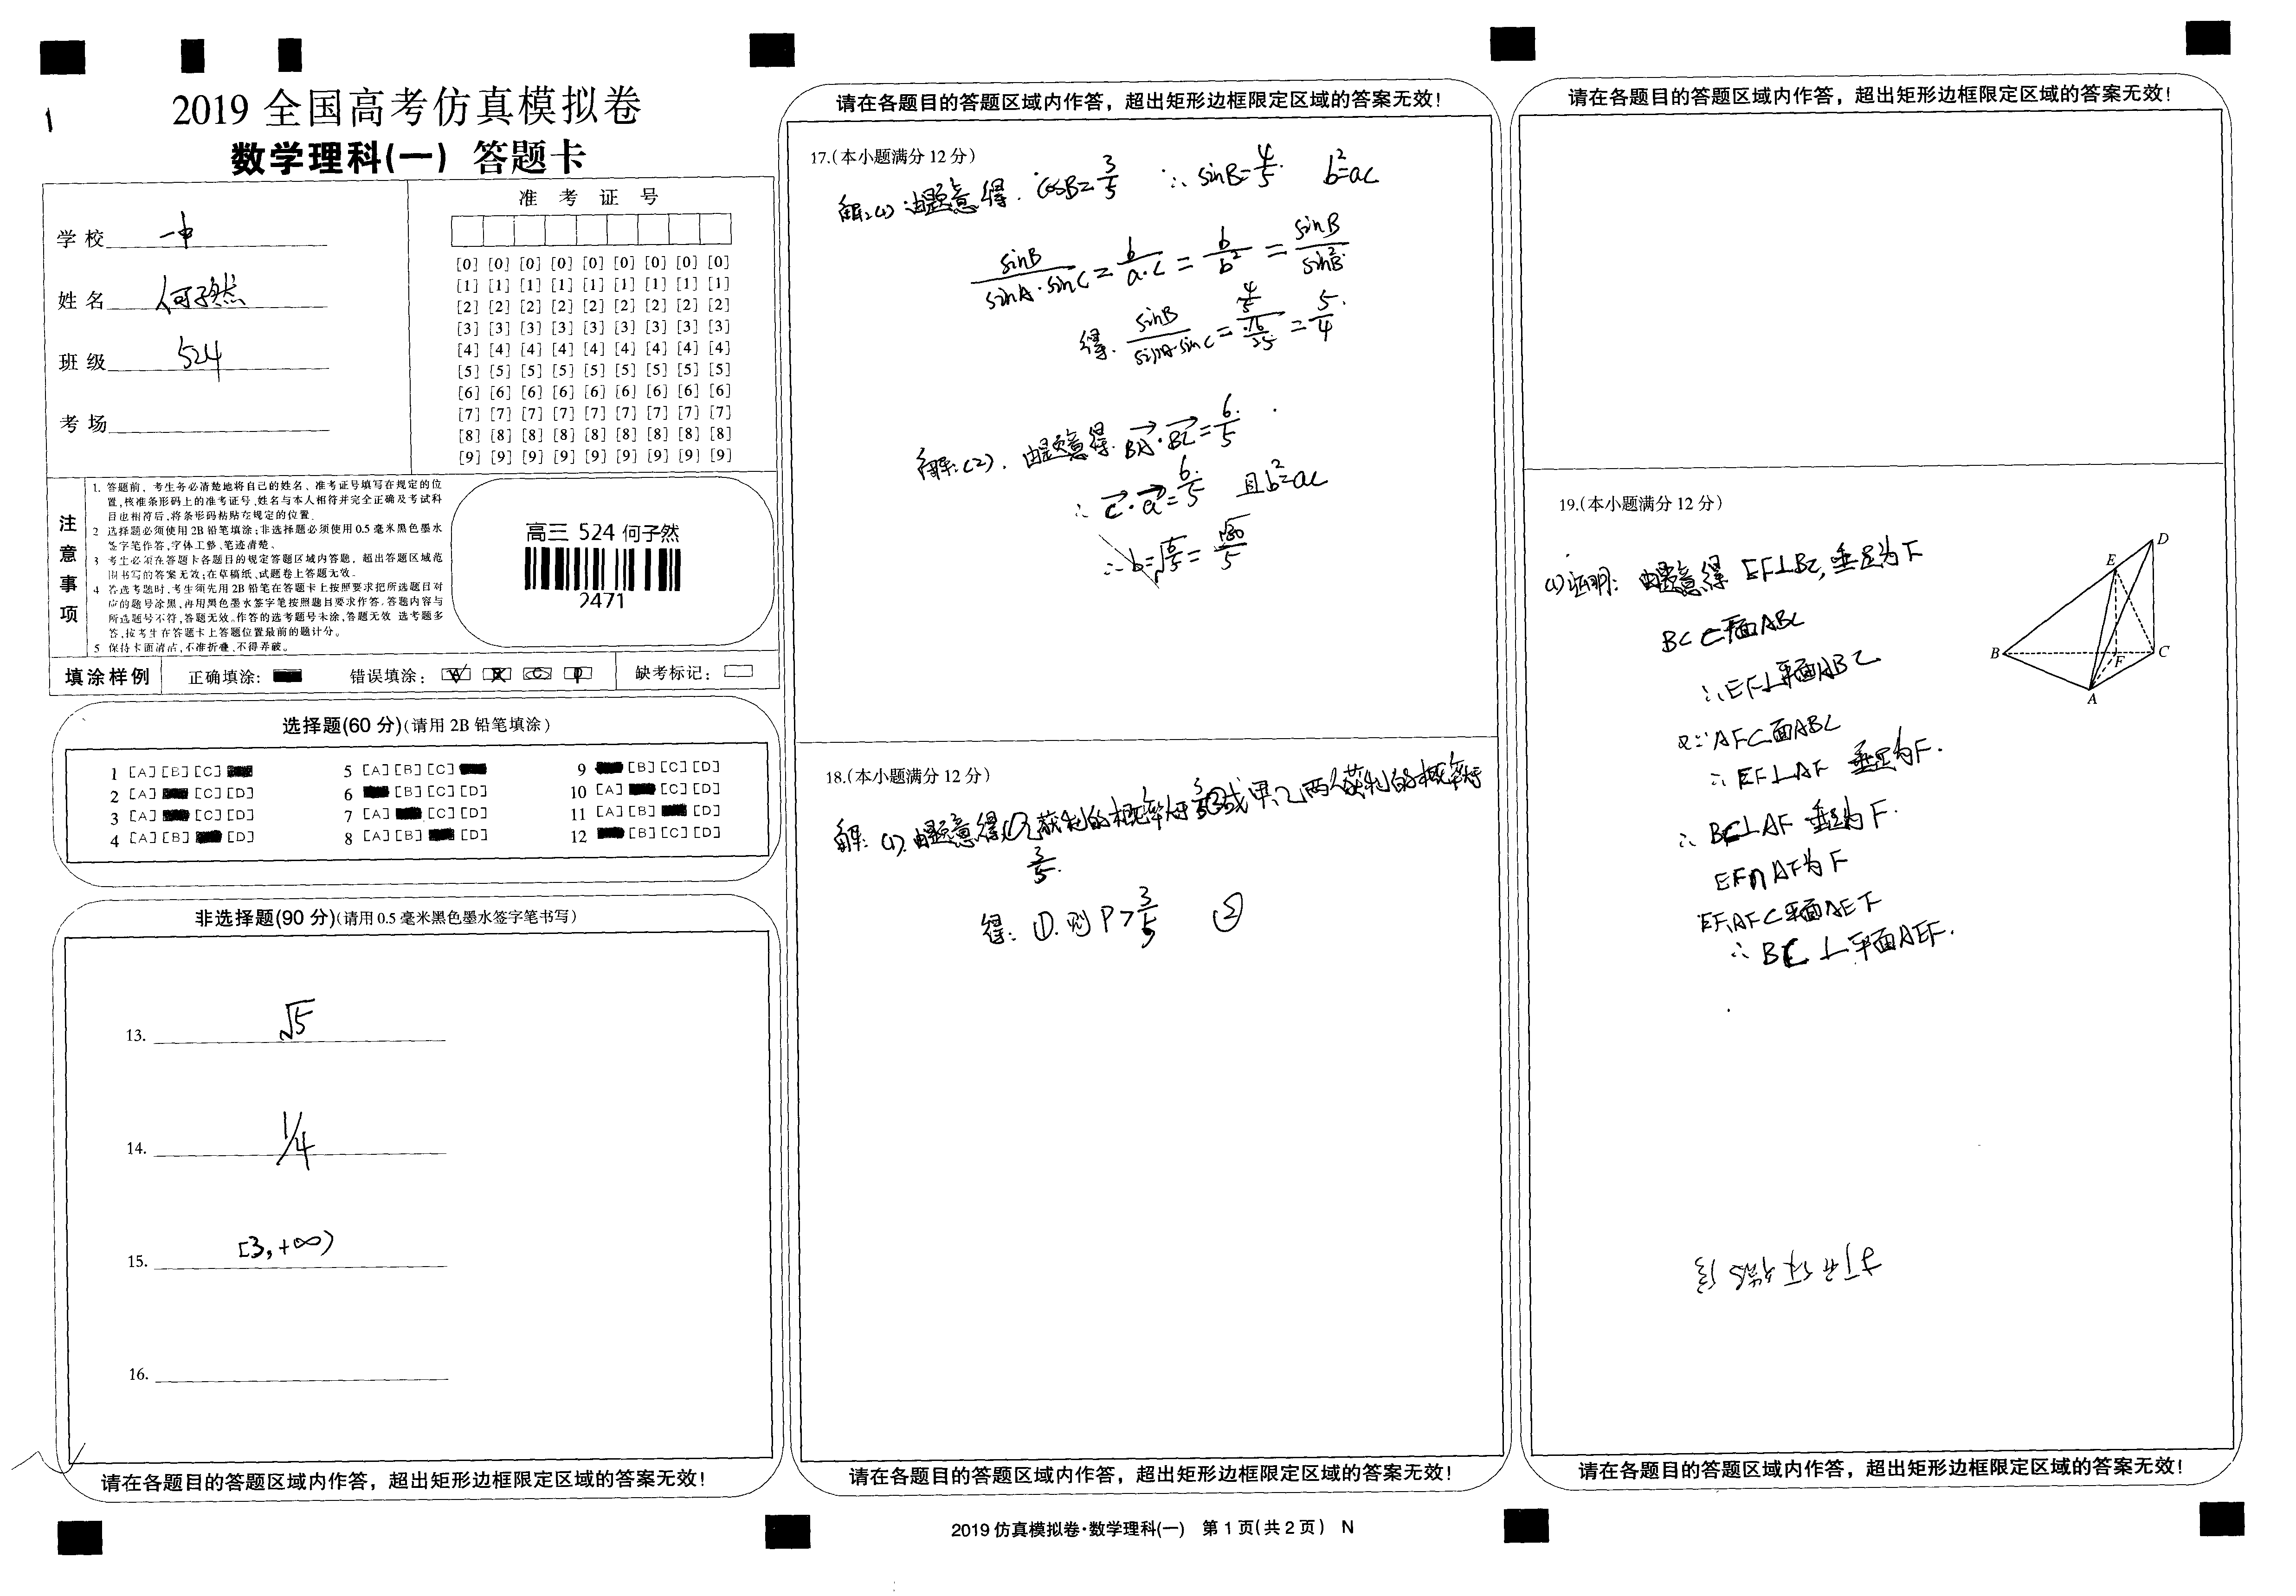 1
2019 全国高考仿真模拟卷
数学理科(一) 答题卡
学校 一中
姓名 何子然
班级 524
考场
准 考 证 号
[0] [0] [0] [0] [0] [0] [0] [0] [0]
[1] [1] [1] [1] [1] [1] [1] [1] [1]
[2] [2] [2] [2] [2] [2] [2] [2] [2]
[3] [3] [3] [3] [3] [3] [3] [3] [3]
[4] [4] [4] [4] [4] [4] [4] [4] [4]
[5] [5] [5] [5] [5] [5] [5] [5] [5]
[6] [6] [6] [6] [6] [6] [6] [6] [6]
[7] [7] [7] [7] [7] [7] [7] [7] [7]
[8] [8] [8] [8] [8] [8] [8] [8] [8]
[9] [9] [9] [9] [9] [9] [9] [9] [9]
注意事项
1. 答题前，考生务必清楚地将自己的姓名、准考证号填写在规定的位
置,核准条形码上的准考证号、姓名与本人相符并完全正确及考试科
目也相符后,将条形码粘贴在规定的位置。
2 选择题必须使用2B铅笔填涂;非选择题必须使用0.5毫米黑色墨水
签字笔作答,字体工整、笔迹清楚。
3 考生必须在答题卡各题目的规定答题区域内答题，超出答题区域范
围书写的答案无效;在草稿纸、试题卷上答题无效。
4 答选考题时,考生须先用2B铅笔在答题卡上按照要求把所选题目对
应的题号涂黑,再用黑色墨水签字笔按照题目要求作答。答题内容与
所选题号不符,答题无效。作答的选考题号未涂,答题无效 选考题多
答,按考生在答题卡上答题位置最前的题计分。
5 保持卡面清洁,不准折叠、不得弄破。
高三 524 何子然
2471
填涂样例 正确填涂： 错误填涂： 缺考标记：
选择题(60 分)(请用 2B 铅笔填涂)
1 [A] [B] [C]
2 [A] [C] [D]
3 [A] [C] [D]
4 [A] [B] [D]
5 [A] [B] [C]
6 [B] [C] [D]
7 [A] [C] [D]
8 [A] [B] [D]
9 [B] [C] [D]
10 [A] [C] [D]
11 [A] [B] [D]
12 [B] [C] [D]
非选择题(90 分)(请用 0.5 毫米黑色墨水签字笔书写)
13. √5
14. 1/4
15. [3,+∞)
16.
请在各题目的答题区域内作答，超出矩形边框限定区域的答案无效！
请在各题目的答题区域内作答，超出矩形边框限定区域的答案无效！
17.(本小题满分 12 分)
解:(1) 由题意得. cosB=3/5 ∴ sinB=4/5. b²=ac
sinB/(sinA·sinC) = b/(a·c) = b/b² = sinB/sin²B
得. sinB/(sinA·sinC) = (4/5)/(16/25) = 5/4.
解:(2). 由题意得. BA·BC=6/5.
∴ c·a=6/5 且b²=ac
∴ b=√(6/5)=√30/5
18.(本小题满分 12 分)
3/5.
得: ①. 则 P>3/5 ②
请在各题目的答题区域内作答，超出矩形边框限定区域的答案无效！
2019 仿真模拟卷·数学理科(一) 第 1 页(共 2 页) N
请在各题目的答题区域内作答，超出矩形边框限定区域的答案无效！
19.(本小题满分 12 分)
(1)证明: 由题意得 EF⊥BC, 垂足为F
BC⊂平面ABC
∴EF⊥平面ABC
又∵AF⊂面ABC
∴ EF⊥AF 垂足为F.
∴ BC⊥AF 垂足为F.
EF∩AF为F
EF,AF⊂平面AEF
∴ BC⊥平面AEF.
D
E
B
F
C
A
请在各题目的答题区域内作答，超出矩形边框限定区域的答案无效！